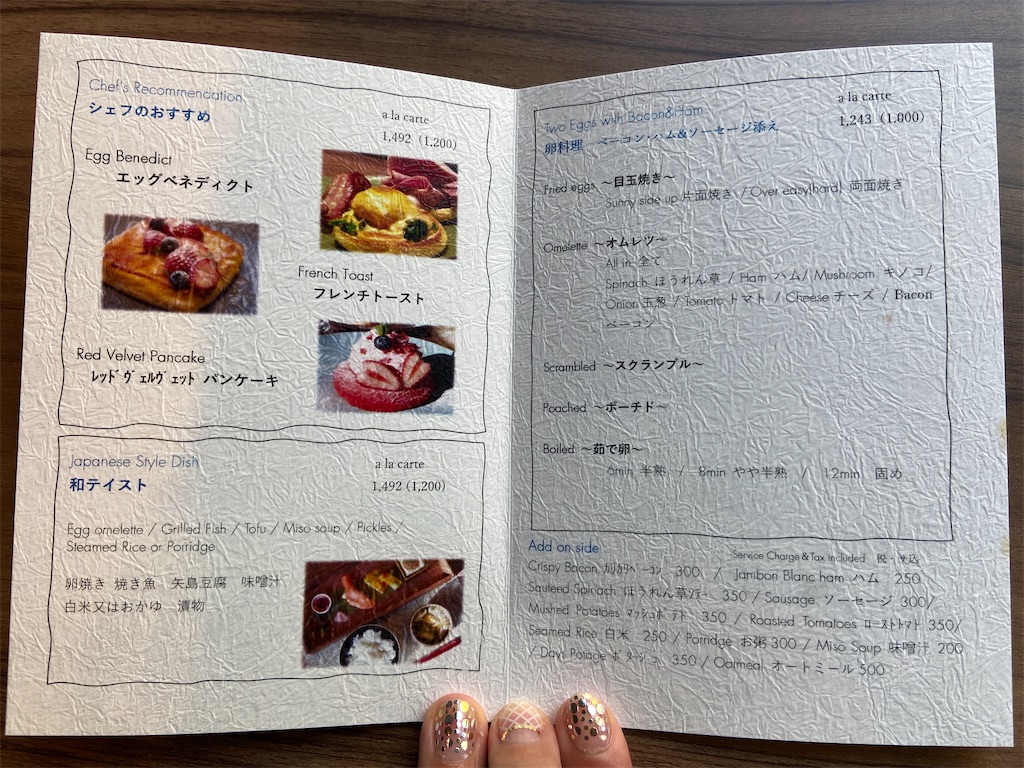 Chef's Recommendation
シェフのおすすめ
a la carte
1,492 (1,200)
Egg Benedict
エッグベネディクト
French Toast
フレンチトースト
Red Velvet Pancake
ﾚｯﾄﾞｳﾞｪﾙｳﾞｪｯﾄ パンケーキ
Japanese Style Dish
和テイスト
a la carte
1,492 (1,200)
Egg omelette / Grilled Fish / Tofu / Miso soup / Pickles /
Steamed Rice or Porridge
卵焼き 焼き魚 矢島豆腐 味噌汁
白米又はおかゆ 漬物
Two Eggs with Bacon&Ham
卵料理 ベーコン・ハム&ソーセージ添え
a la carte
1,243 (1,000)
Fried eggs ～目玉焼き～
Sunny side up 片面焼き / Over easy(hard) 両面焼き
Omelette ～オムレツ～
All in 全て
Spinach ほうれん草 / Ham ハム/ Mushroom キノコ/
Onion 玉葱 / Tomato トマト / Cheese チーズ / Bacon
ベーコン
Scrambled ～スクランブル～
Poached ～ポーチド～
Boiled ～茹で卵～
6min 半熟 / 8min やや半熟 / 12min 固め
Add on side
Service Charge&Tax included 税・サ込
Crispy Bacon ｶﾘｶﾘﾍﾞｰｺﾝ 300 / Jambon Blanc ham ハム 250
Sauteed Spinach ほうれん草ｿﾃｰ 350 / Sausage ソーセージ 300/
Mushed Potatoes ﾏｯｼｭﾎﾟﾃﾄ 350 / Roasted Tomatoes ﾛｰｽﾄﾄﾏﾄ 350/
Seamed Rice 白米 250 / Porridge お粥 300 / Miso Soup 味噌汁 200
/ Day's Potage ﾎﾟﾀｰｼﾞｭ 350 / Oatmeal オートミール 500